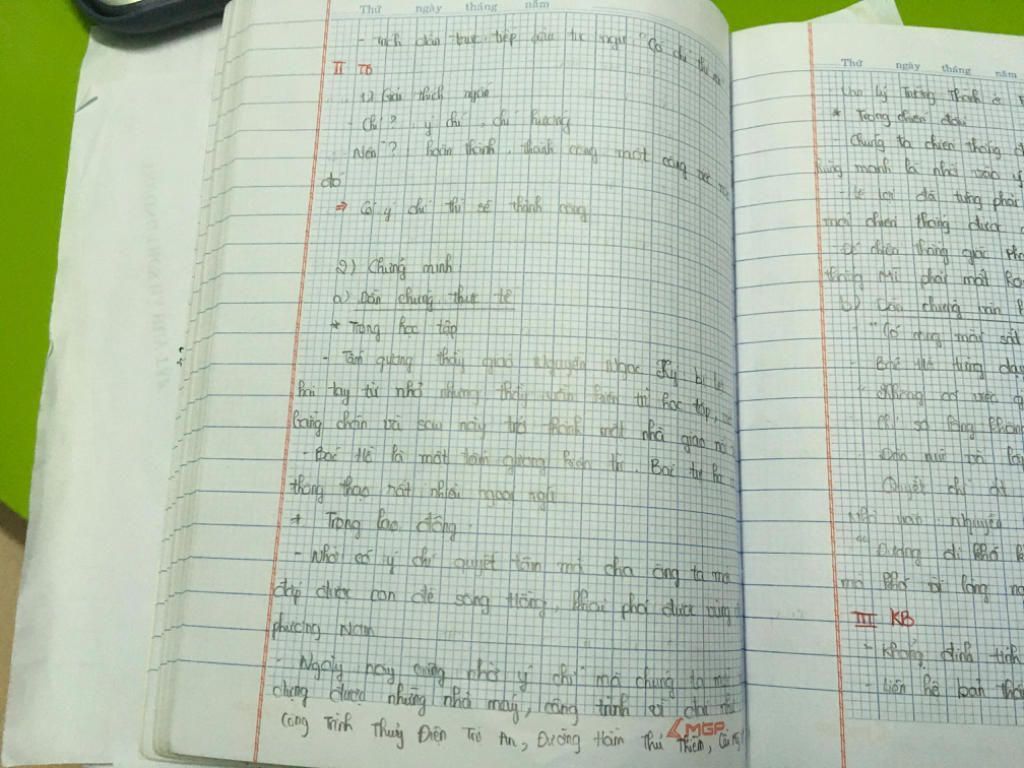 Thứ ngày tháng năm
- Trích dẫn trực tiếp câu tục ngữ "Có chí thì nên
II TB
1) Giải thích ngắn
- Chí? ý chí, chí hướng
Nên"? hoàn thành, thành công một công việc
đó
⇒ Có ý chí thì sẽ thành công
2) Chứng minh
a) Dẫn chứng thực tế
* Trong học tập
- Tấm gương thầy giáo Nguyễn Ngọc Ký bị liệt
hai tay từ nhỏ nhưng thầy vẫn kiên trì học tập
bằng chân và sau này trở thành một nhà giáo
- Bác Hồ là một tấm gương kiên trì. Bác tự học
thông thạo rất nhiều ngoại ngữ
* Trong lao động
- Nhờ có ý chí quyết tâm mà cha ông ta mới
đắp được con đê sông Hồng, khai phá được vùng
phương Nam
- Ngày nay cũng nhờ ý chí mà chúng ta mới
dựng được những nhà máy, công trình vĩ đại như
Công Trình Thủy Điện Trị An, Đường Hầm Thủ Thiêm,
MGP
Thứ ngày tháng năm
* Trong chiến đấu
- Chúng ta chiến thắng
hùng mạnh là nhờ vào
- Lê Lợi đã từng phải
mới chiến thắng được
- Để chiến thắng giặc
thắng Mĩ phải mất
b) Dẫn chứng
- "Có công mài sắt
- Bác Hồ từng dạy
"Không có việc gì
Chỉ sợ lòng không
Đào núi và lấp
Quyết chí
Nhà văn Nguyễn
"Đường đi khó
mà khó vì lòng
III KB
- Khẳng định tính
- Liên hệ bản thân